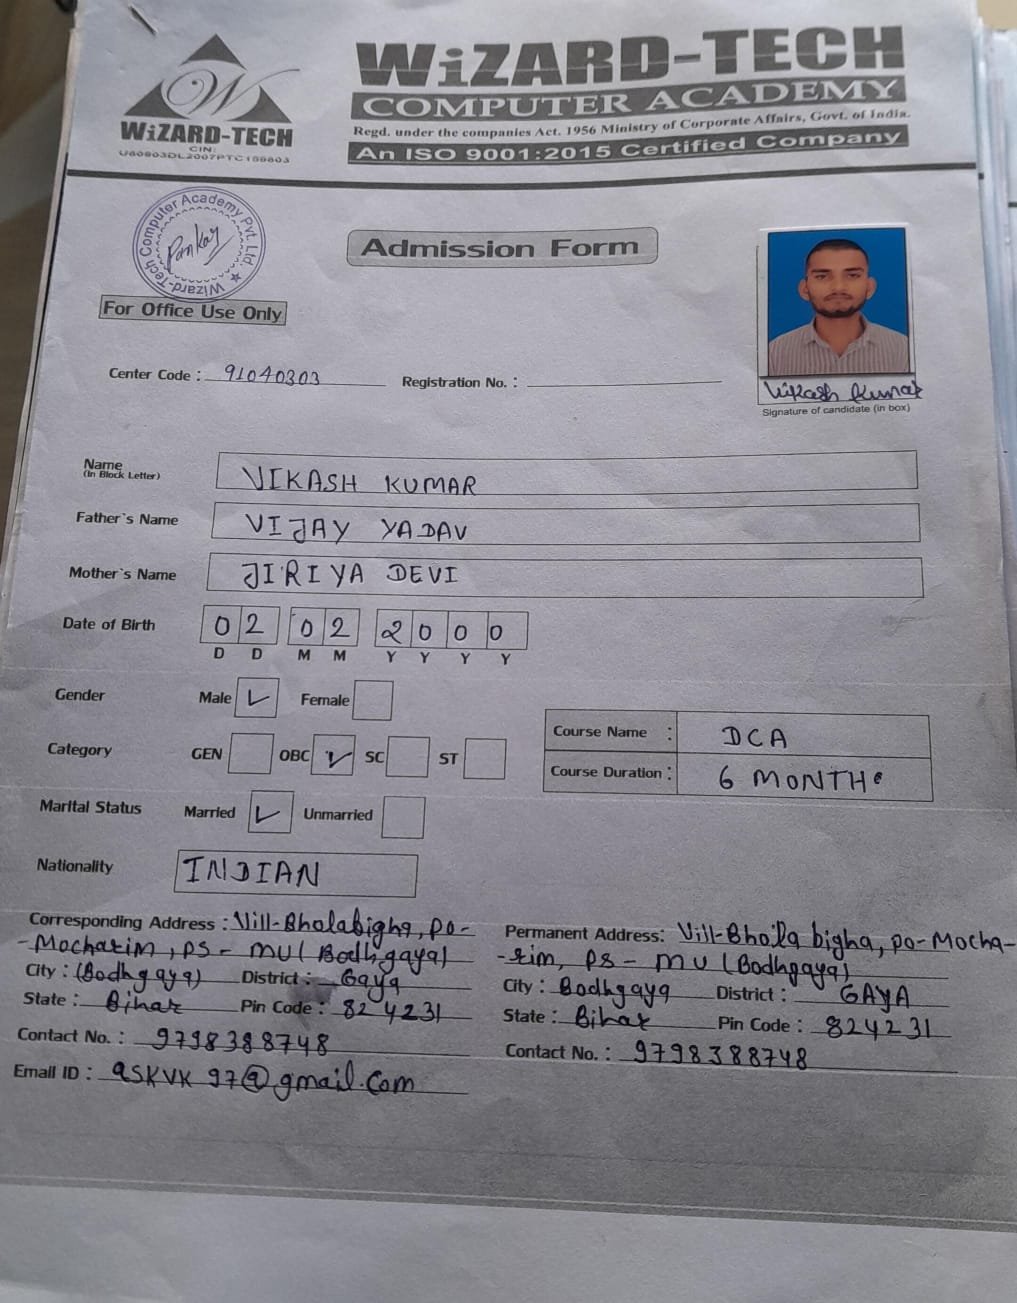 WiZARD-TECH
COMPUTER ACADEMY
Regd. under the companies Act. 1956 Ministry of Corporate Affairs, Govt. of India.
An ISO 9001:2015 Certified Company
W
WiZARD-TECH
CIN:
U80903DL2007PTC159603
Wizard-Tech Computer Academy Pvt. Ltd.
Pankaj
Admission Form
For Office Use Only
Center Code : 91040303
Registration No. :
Vikash Kumar
Signature of candidate (in box)
Name VIKASH KUMAR
(In Block Letter)
Father`s Name VIJAY YADAV
Mother`s Name JIRIYA DEVI
Date of Birth 02 02 2000
D D M M Y Y Y Y
Gender Male Female
Category GEN OBC SC ST
Course Name : DCA
Course Duration : 6 MONTHS
Marital Status Married Unmarried
Nationality INDIAN
Corresponding Address : Vill-Bholabigha, po-
-Mocharim, PS - MU (Bodhgaya)
City : (Bodhgaya) District : Gaya
State : Bihar Pin Code : 824231
Contact No. : 9798388748
Email ID : askvk97@gmail.com
Permanent Address: Vill-Bhola bigha, po-Mocha-
-rim, PS - MU (Bodhgaya)
City : Bodhgaya District : GAYA
State : Bihar Pin Code : 824231
Contact No. : 9798388748